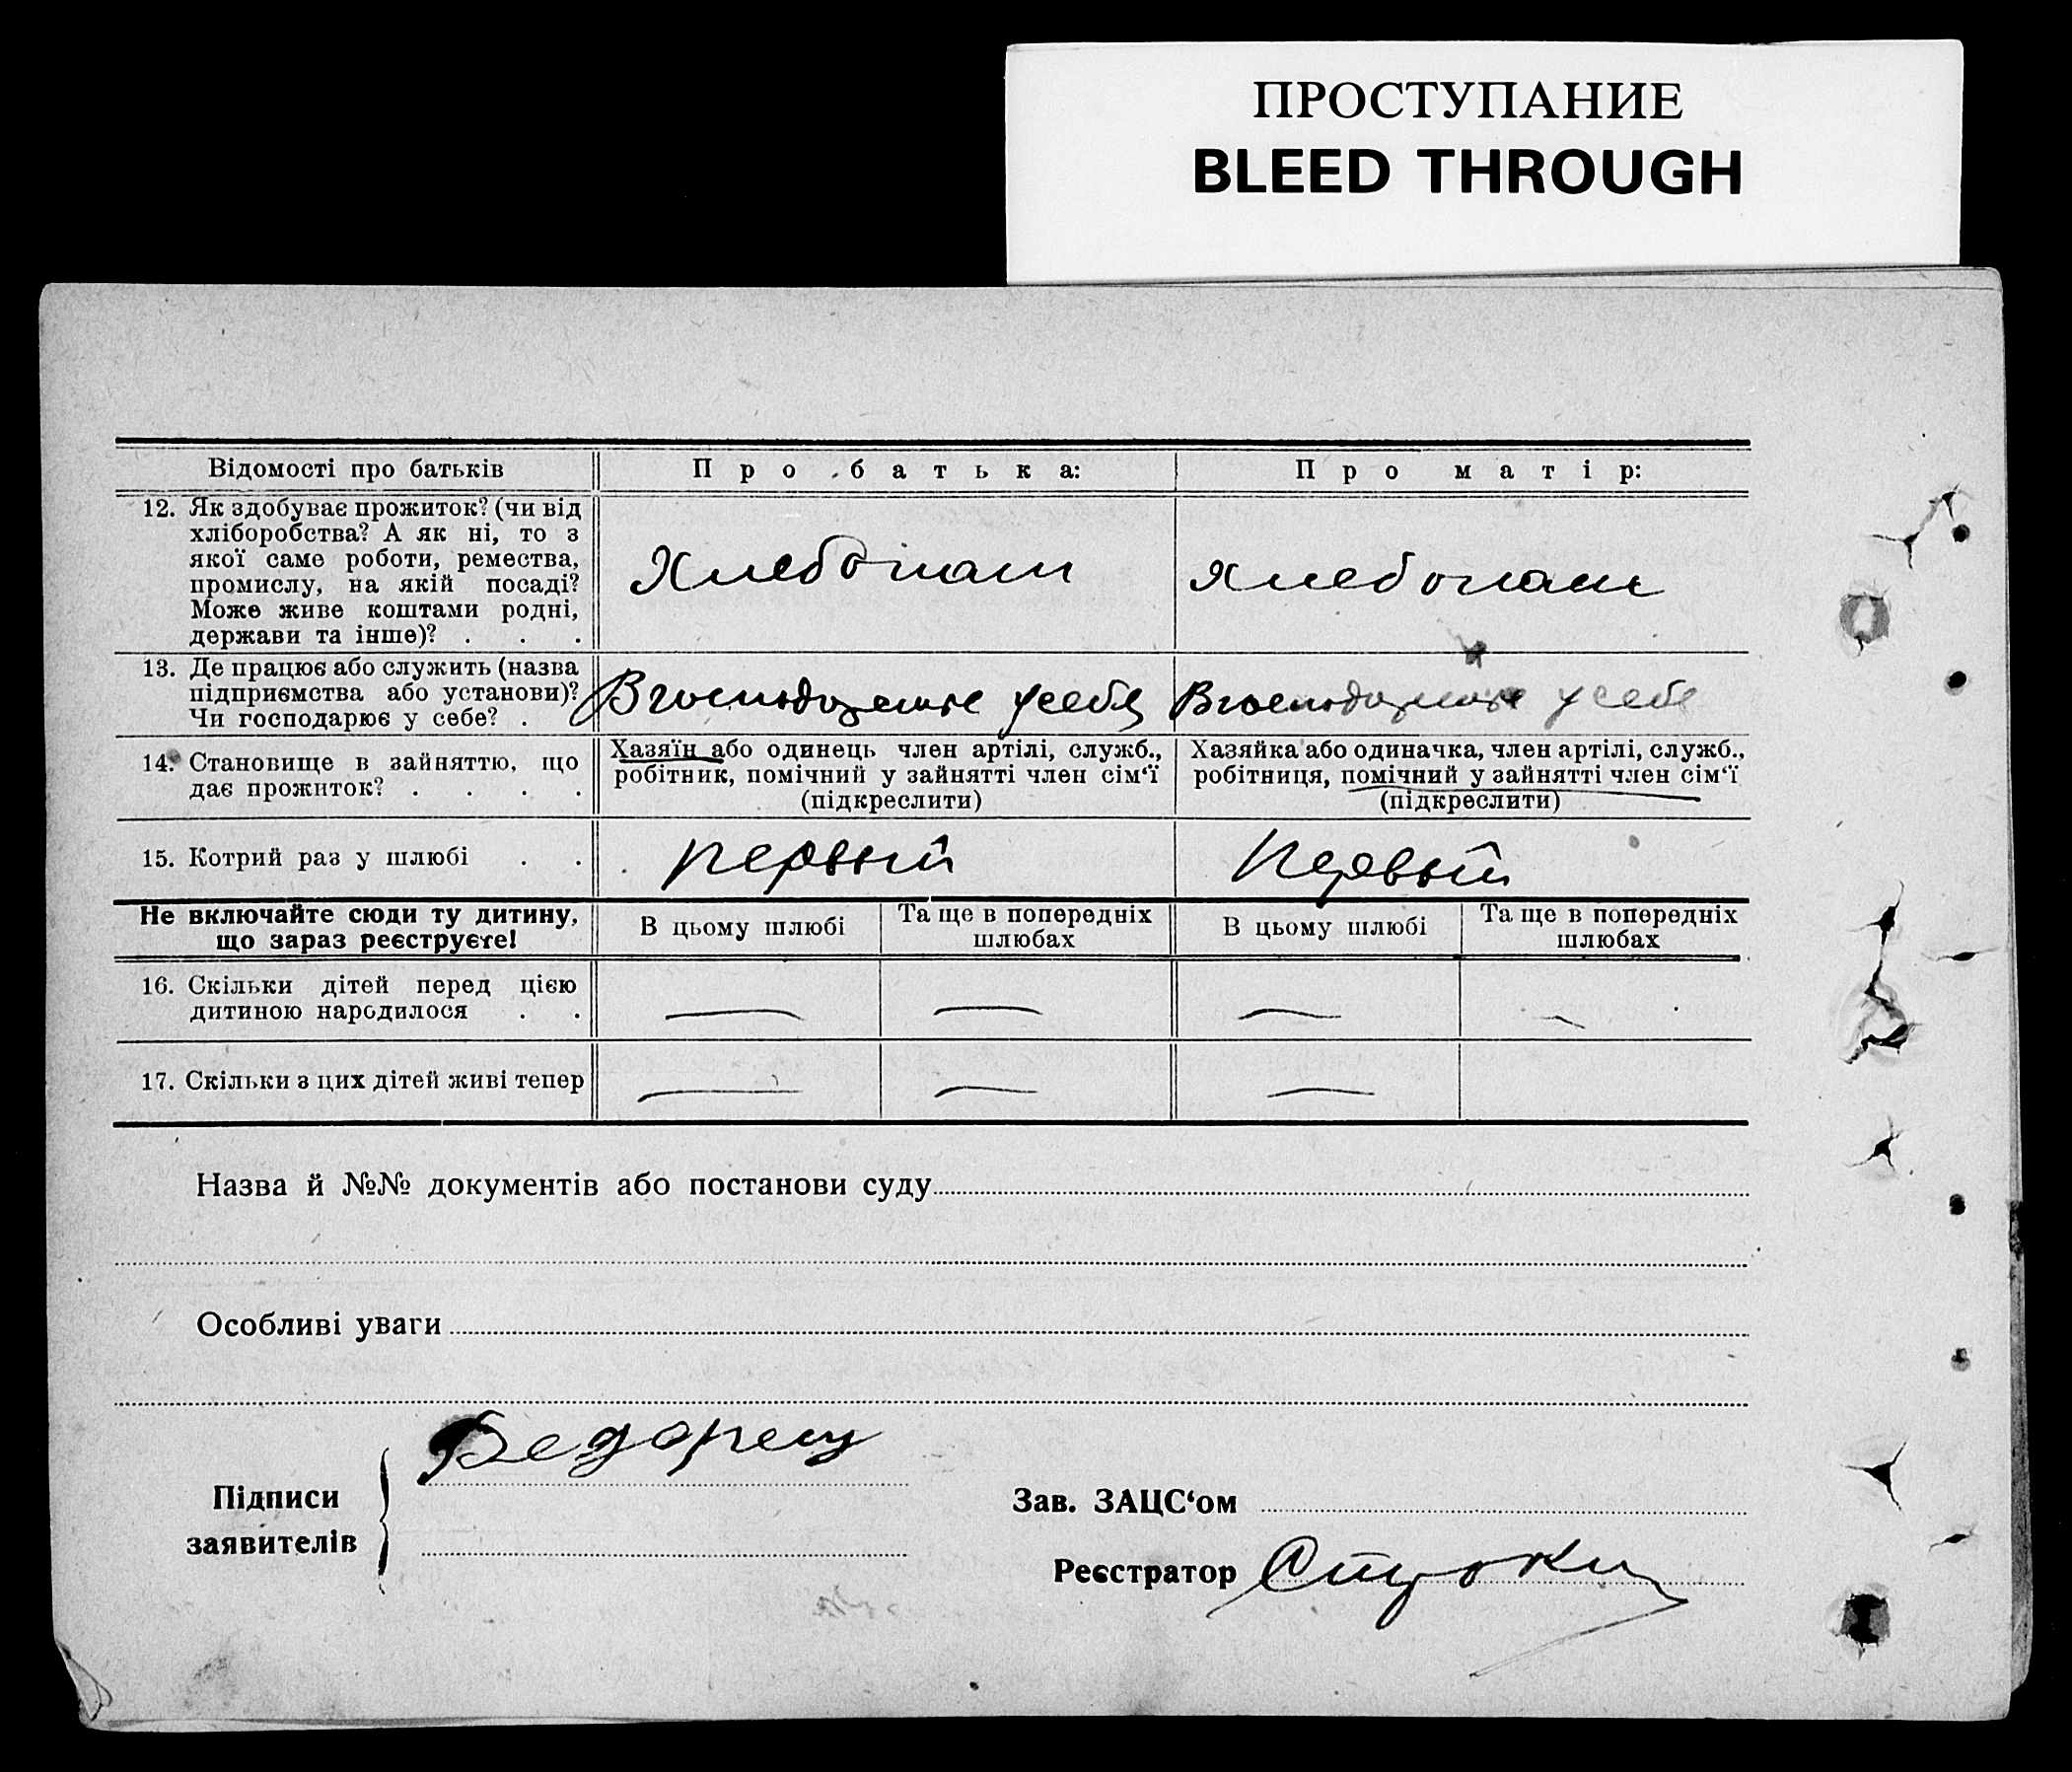 ПРОСТУПАНИЕ
BLEED THROUGH
Відомості про батьків
Про батька:
Про матір:
12. Як здобуває прожиток? (чи від
хліборобства? А як ні, то з
якої саме роботи, ремества,
промислу, на якій посаді?
Може живе коштами родні,
держави та інше)? . . .
Хлебопаш
Хлебопаш
13. Де працює або служить (назва
підприємства або установи)?
Чи господарює у себе? .
В
у себя
В
у себе
14. Становище в зайняттю, що
дає прожиток? . . . .
Хазяїн або одинець член артілі, служб.,
робітник, помічний у зайнятті член сім‘ї
(підкреслити)
Хазяйка або одиначка, член артілі, служб.,
робітниця, помічний у зайнятті член сім‘ї
(підкреслити)
15. Котрий раз у шлюбі . .
первый
первый
Не включайте сюди ту дитину,
що зараз реєструєте!
В цьому шлюбі
Та ще в попередніх
шлюбах
В цьому шлюбі
Та ще в попередніх
шлюбах
16. Скільки дітей перед цією
дитиною народилося . .
— — — —
17. Скільки з цих дітей живі тепер
— — —
Назва й №№ документів або постанови суду
Особливі уваги
Підписи
заявителів
Зав. ЗАЦС‘ом
Реєстратор